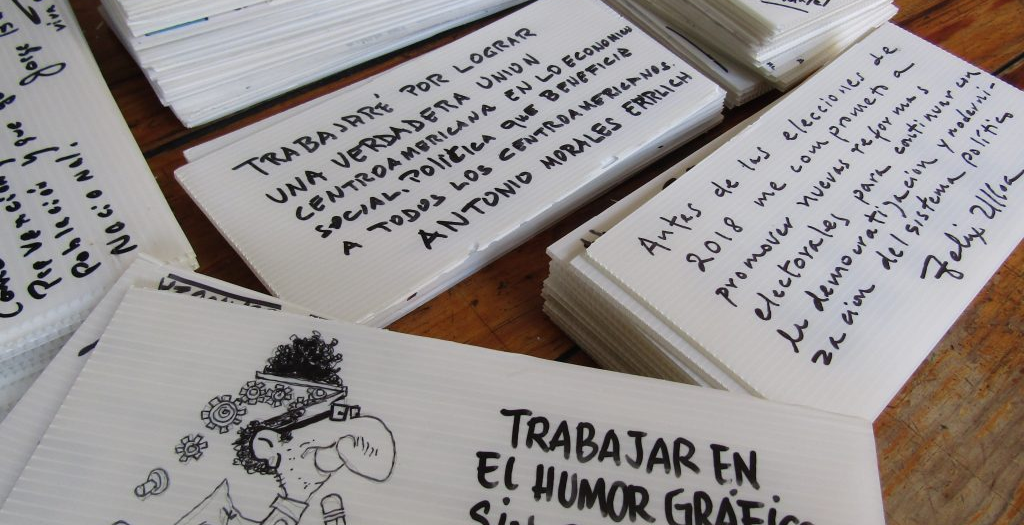 TRABAJARÉ POR LOGRAR
UNA VERDADERA UNION
CENTROAMERICANA EN LO ECONOMICO
SOCIAL, POLÍTICA QUE BENEFICIE
A TODOS LOS CENTROAMERICANOS.
ANTONIO MORALES EHRLICH
Antes de las elecciones de
2018 me comprometo a
promover nuevas reformas
electorales para continuar con
la democratización y moderni
zación del sistema político
Felix Ulloa
Prevención
Población
Nacional.
TRABAJAR EN
EL HUMOR GRÁFICO
SIN